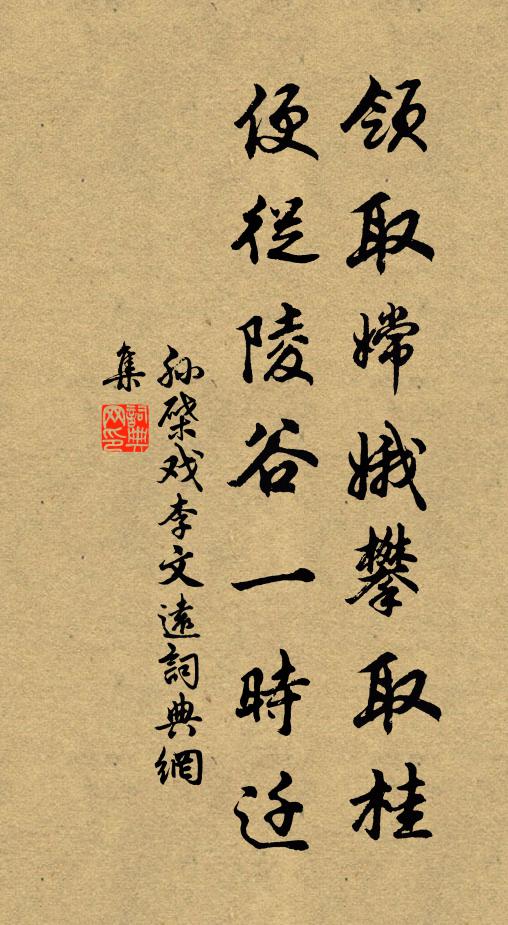 領取嫦娥攀取桂
便從陵谷一時迁
孫棨戏李文遠詞典網
集
詞典
网印